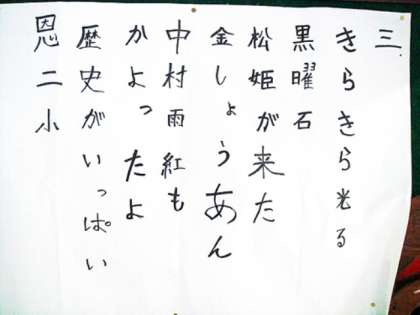 三.
きらきら光る
黒曜石
松姫が来た
金しょうあん
中村雨紅も
かよったよ
歴史がいっぱい
恩二小